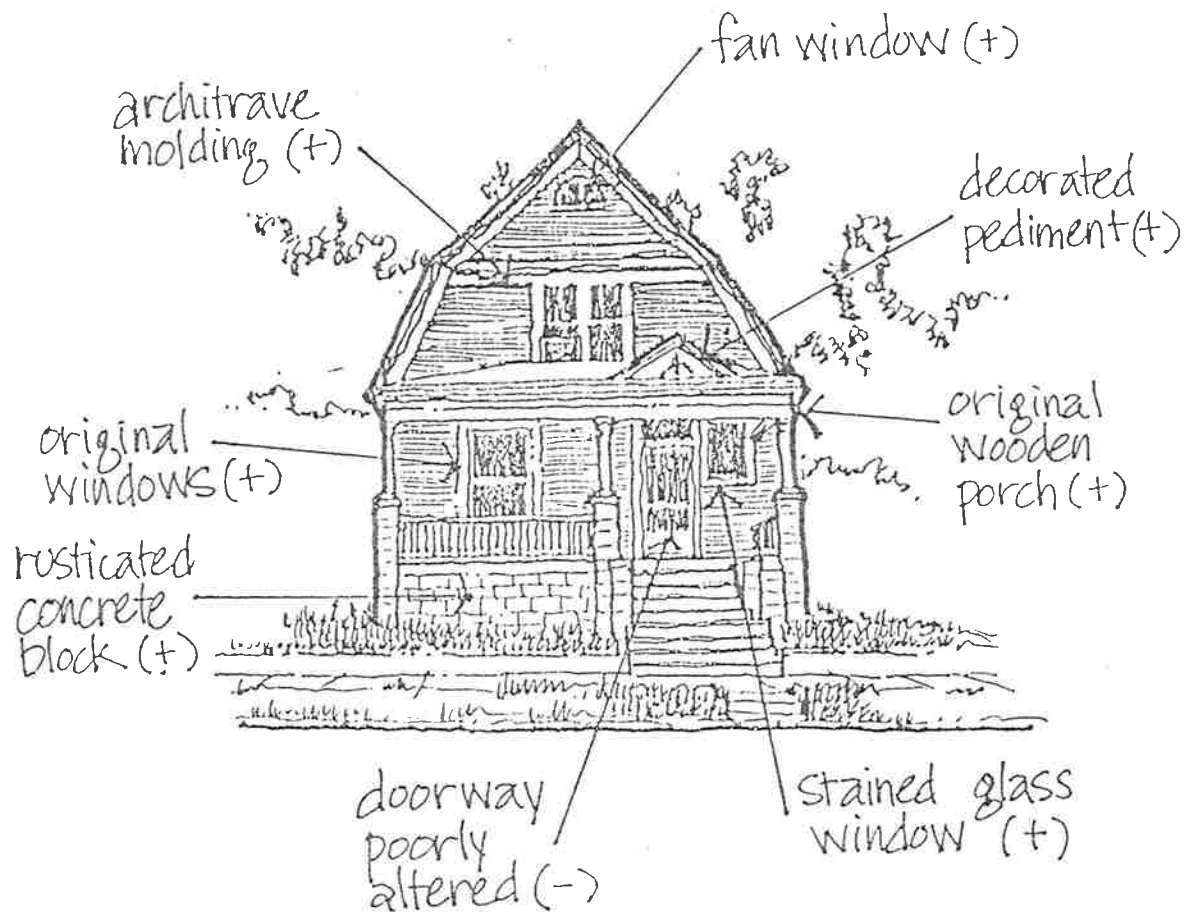 fan window (+)
architrave
molding (+)
decorated
pediment (+)
original
windows (+)
original
wooden
porch (+)
rusticated
concrete
block (+)
doorway
poorly
altered (-)
stained glass
window (+)